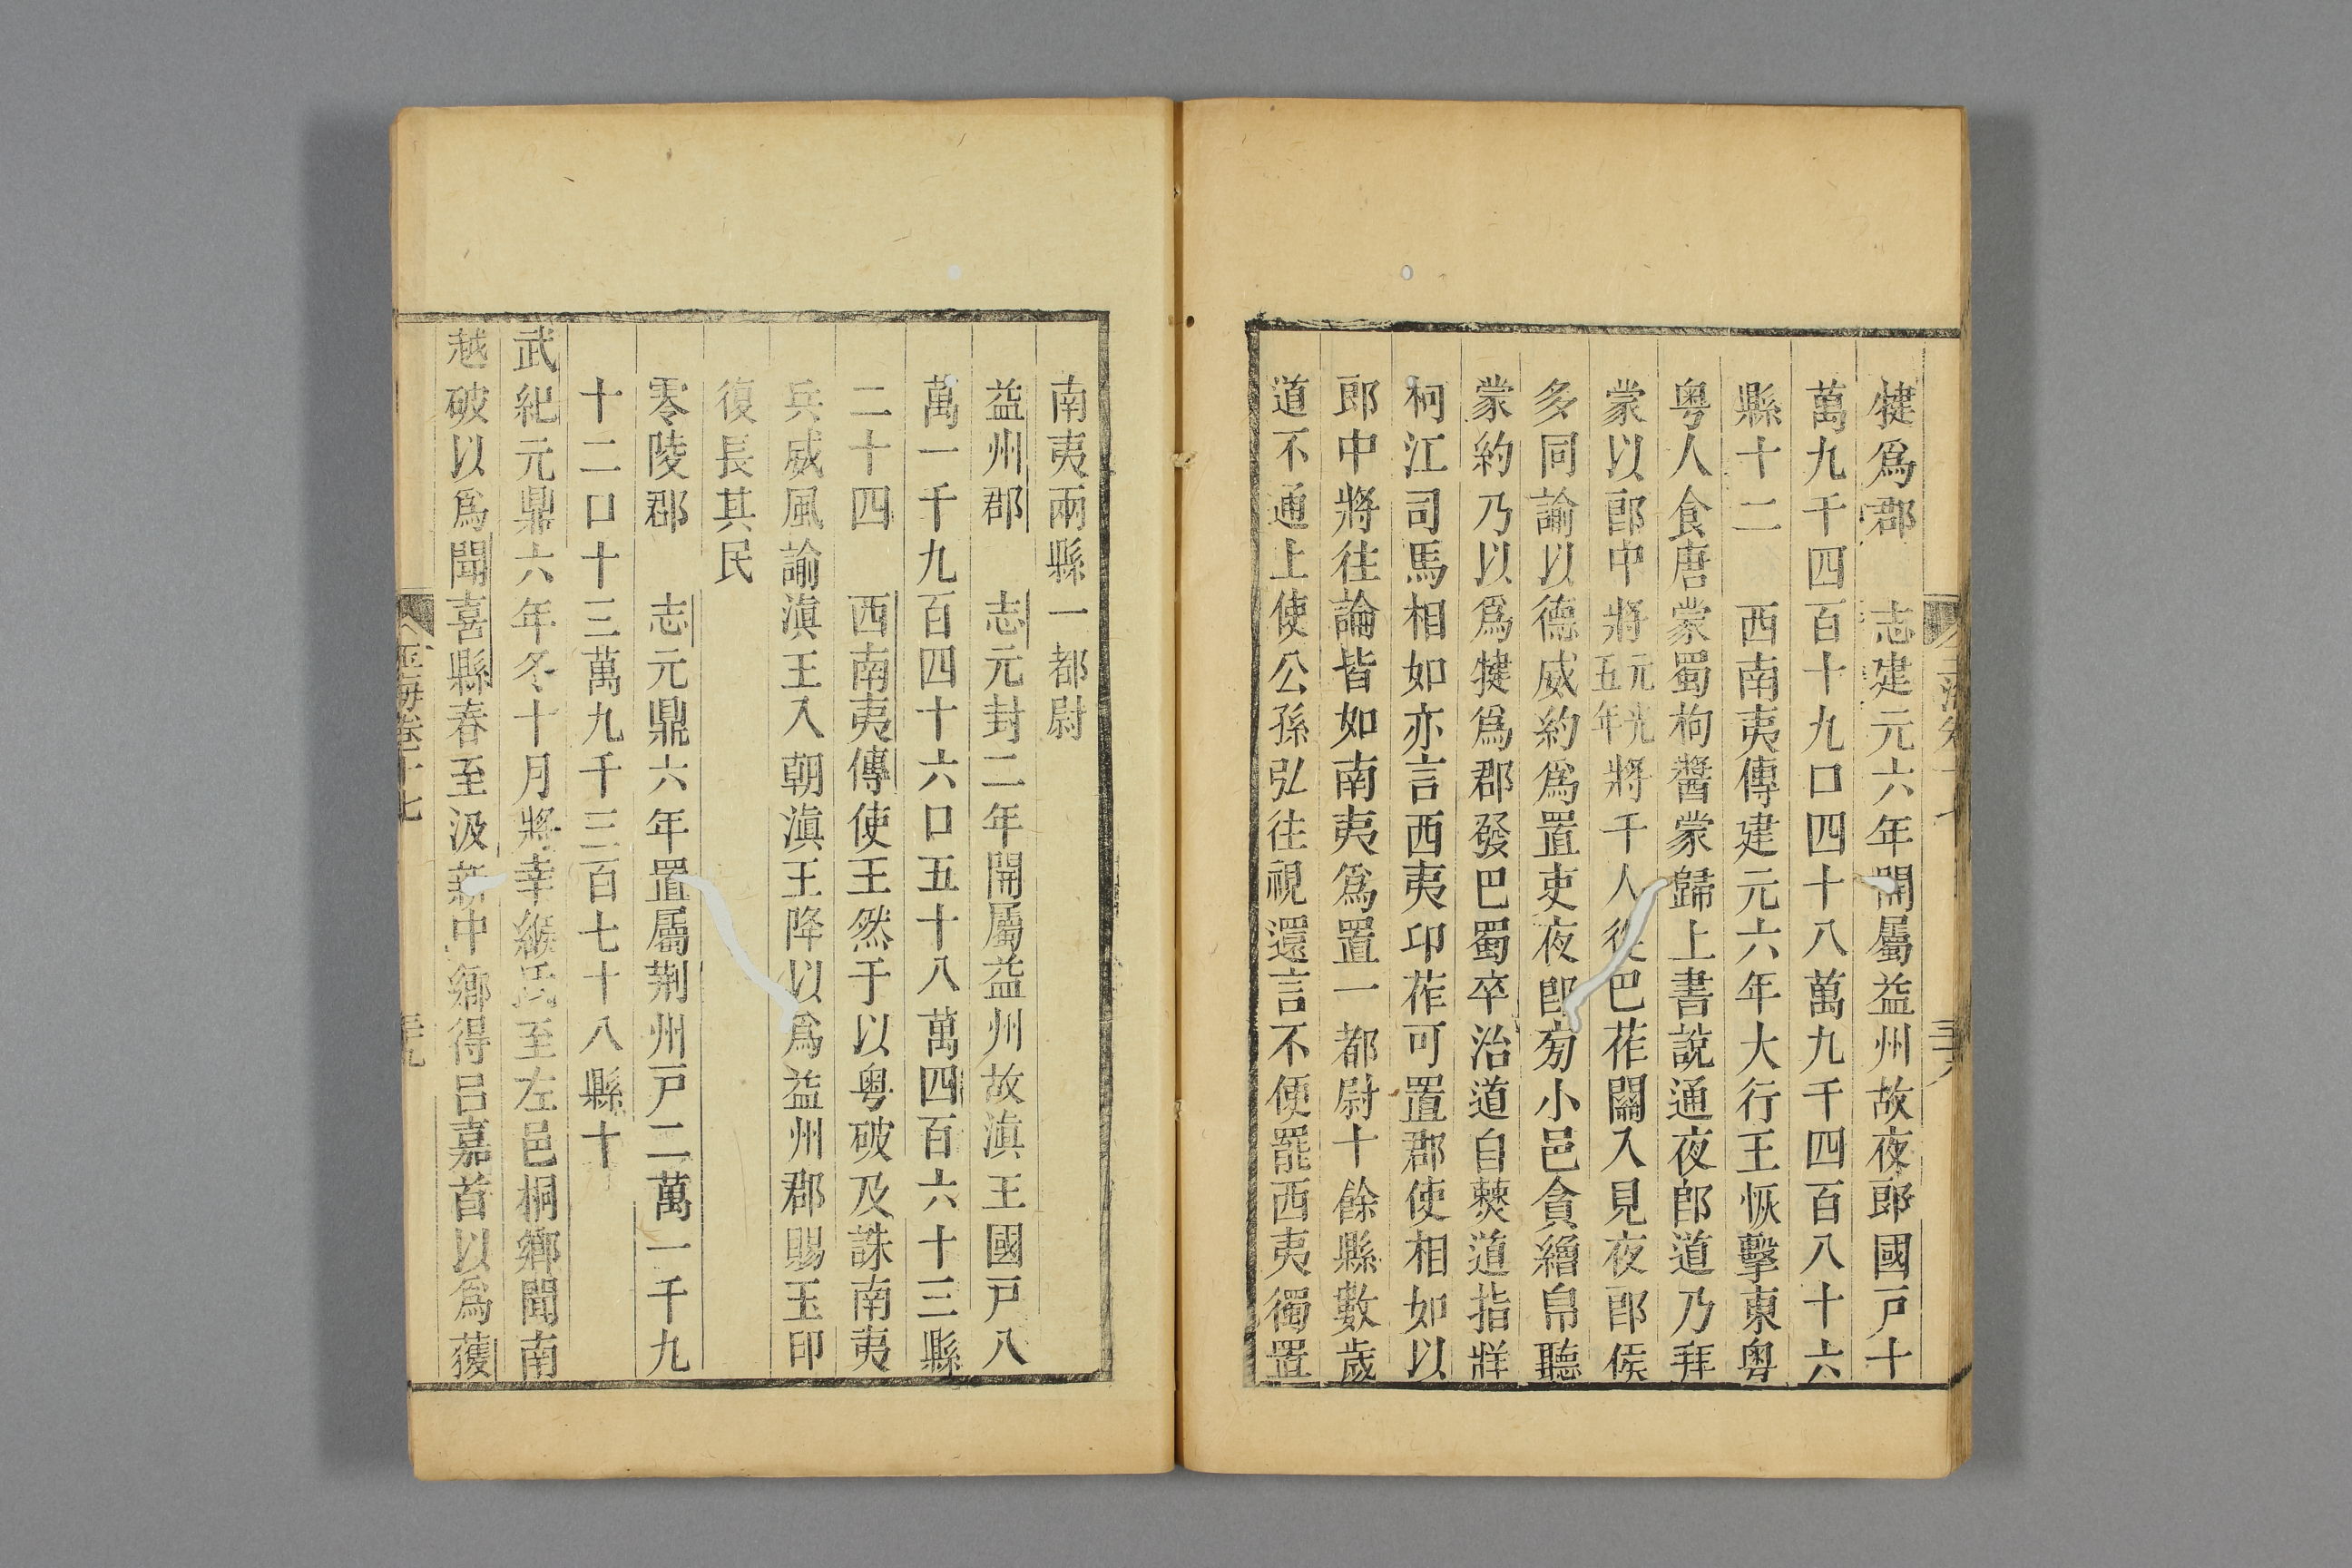 犍爲郡　志建元六年開屬益州故夜郎國戸十
萬九千四百十九口四十八萬九千四百八十六
縣十二　西南夷傳建元六年大行王恢擊東粵
粵人食唐蒙蜀枸醬蒙歸上書說通夜郎道乃拜
蒙以郎中將元光五年將千人從巴莋關入見夜郎侯
多同諭以德威約爲置吏夜郎旁小邑貪繒帛聽
蒙約乃以爲犍爲郡發巴蜀卒治道自僰道指牂
柯江司馬相如亦言西夷卭莋可置郡使相如以
郎中將往論皆如南夷爲置一都尉十餘縣數歲
道不通上使公孫弘往視還言不便罷西夷獨置
南夷兩縣一都尉
益州郡　志元封二年開屬益州故滇王國戸八
萬一千九百四十六口五十八萬四百六十三縣
二十四　西南夷傳使王然于以粵破及誅南夷
兵威風諭滇王入朝滇王降以爲益州郡賜王印
復長其民
零陵郡　志元鼎六年置屬荆州戸二萬一千九
十二口十三萬九千三百七十八縣十
武紀元鼎六年冬十月將幸緱氏至左邑桐鄉聞南
越破以爲聞喜縣春至汲新中鄉得呂嘉首以爲獲
玉海卷十七